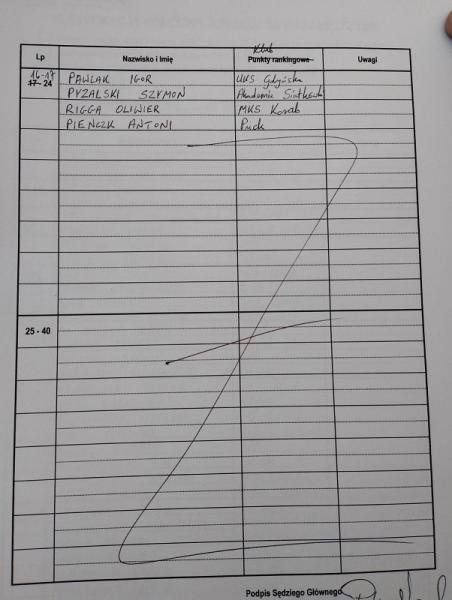 Lp Nazwisko i Imię Klub Punkty rankingowe Uwagi
16-17 PAWLAK IGOR UKS Gdyńska
17-24 PYZALSKI SZYMON Akademia Siatkówki
RIGGA OLIWIER MKS Korab
PIEŃCZK ANTONI Puck
25 - 40
Podpis Sędziego Głównego